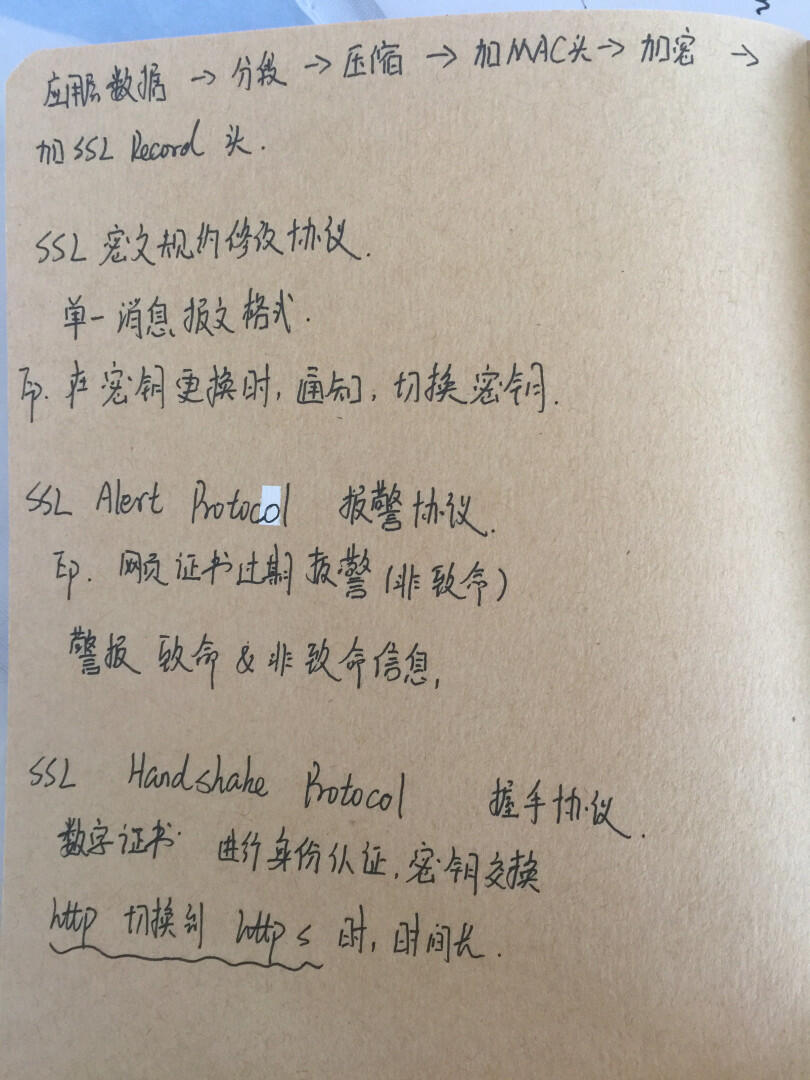 应用层数据 → 分段 → 压缩 → 加MAC头 → 加密 →
加 SSL Record 头.
SSL 密文规约修改协议.
单一消息报文格式.
即. 在密钥更换时, 通知, 切换密钥.
SSL Alert Protocol 报警协议.
即. 网页证书过期报警 (非致命)
警报 致命 & 非致命信息,
SSL Handshake Protocol 握手协议.
数字证书. 进行身份认证, 密钥交换
http 切换到 https 时, 时间长.